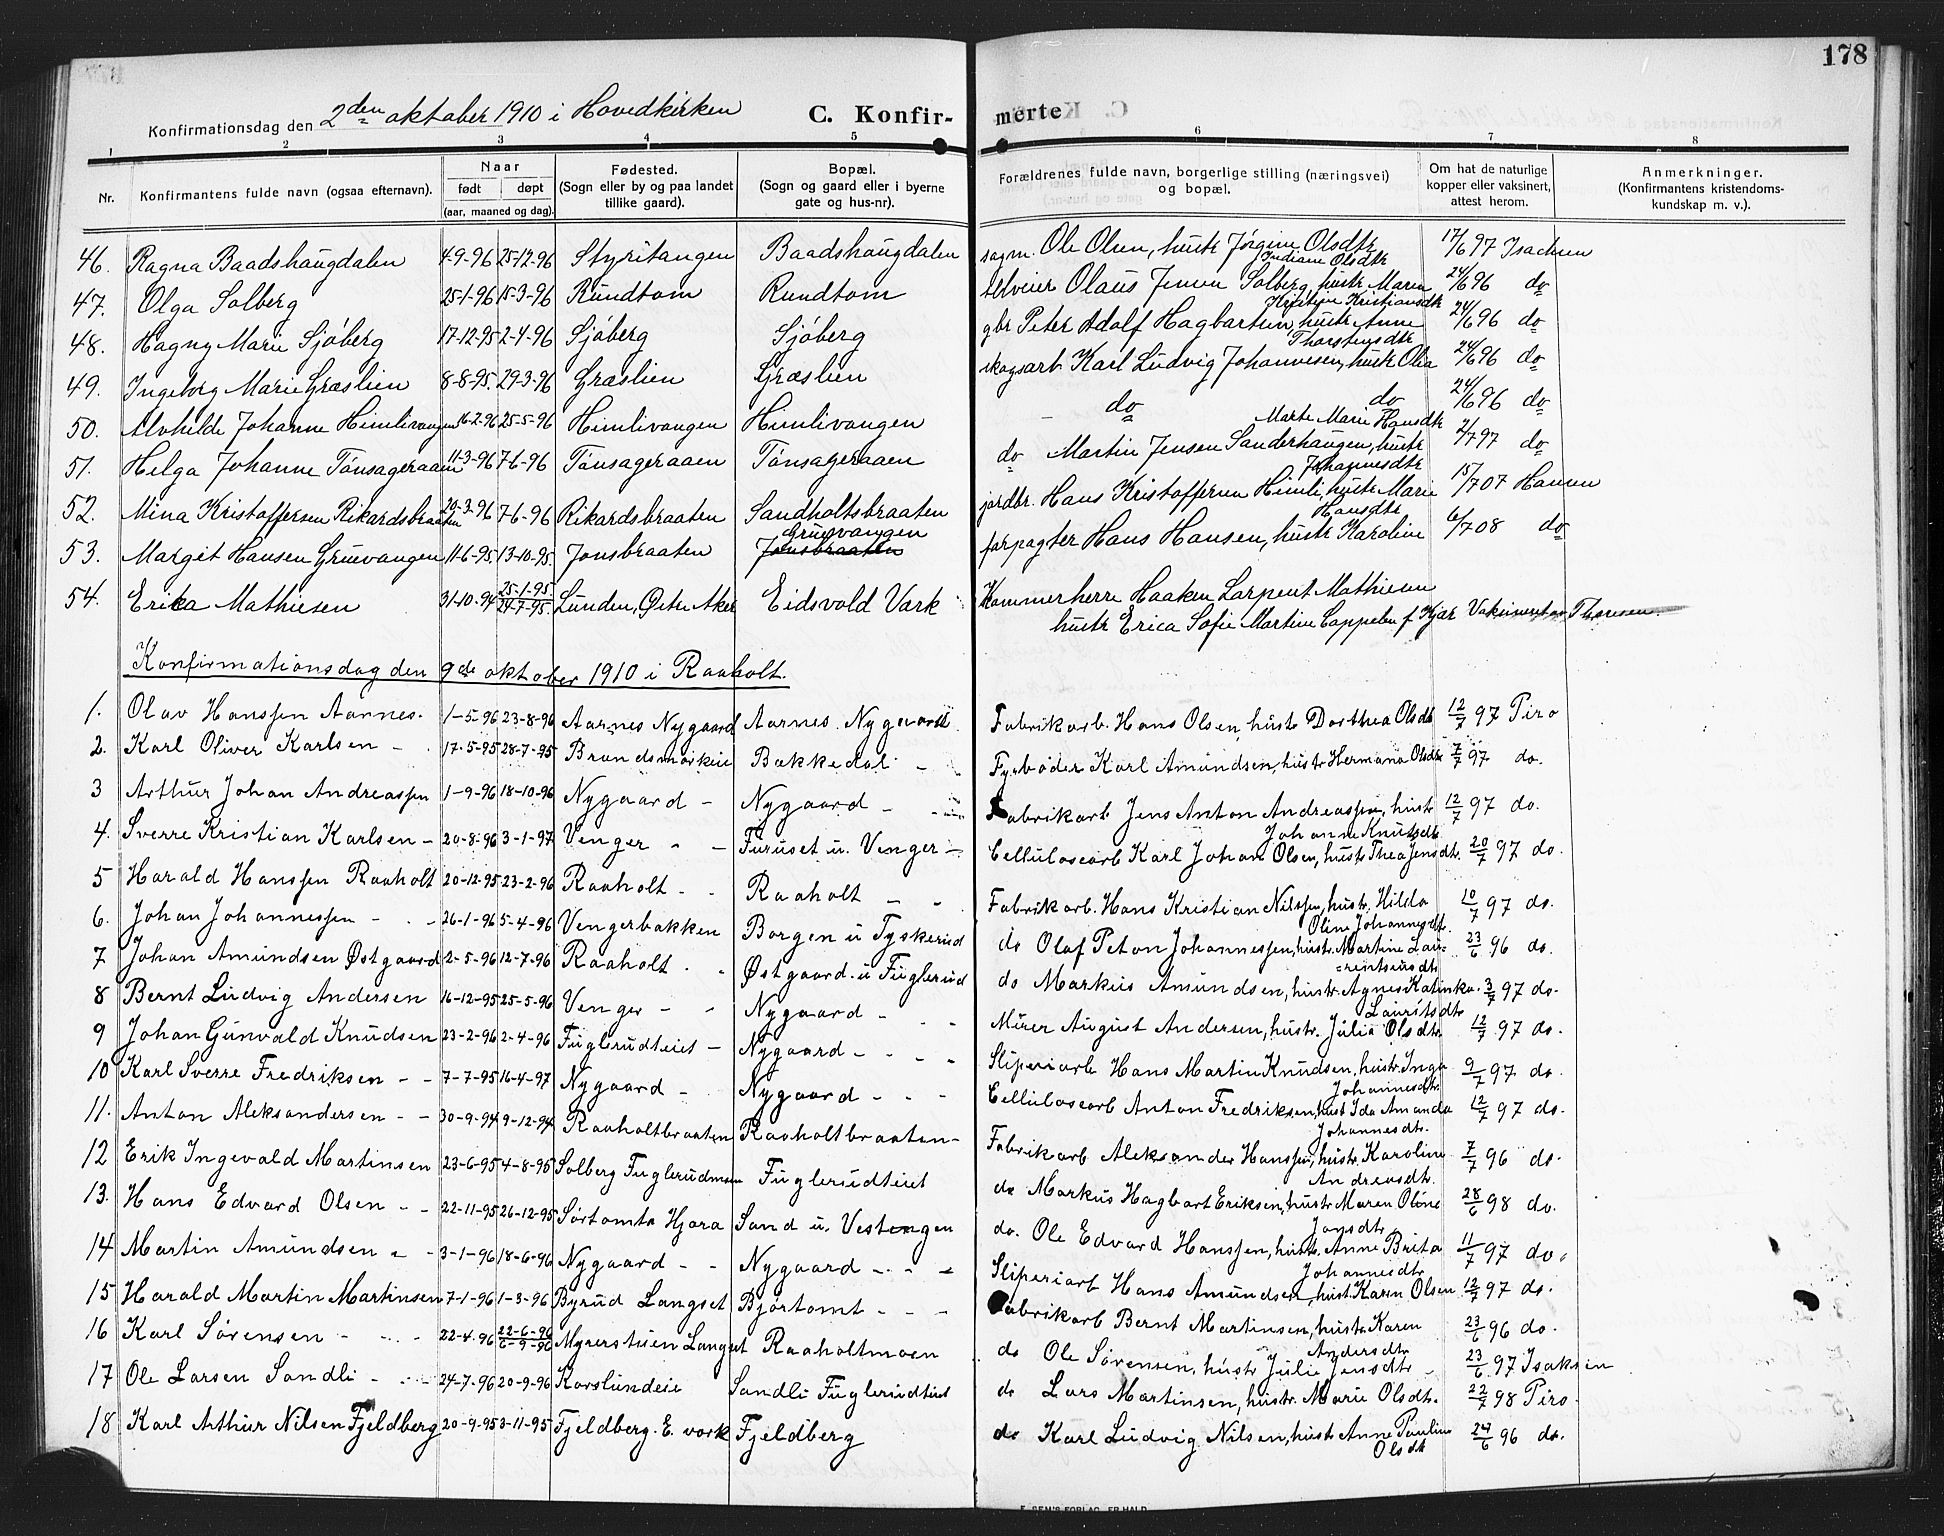 178
Konfirmationsdag den 2den oktober 1910 i Hovedkirken C. Konfirmerte
1 2 3 4 5 6 7 8
Nr. Konfirmantens fulde navn (ogsaa efternavn). Naar født døpt (aar, maaned og dag). Fødested. (Sogn eller by og paa landet tillike gaard). Bopæl. (Sogn og gaard eller i byerne gate og hus-nr). Forældrenes fulde navn, borgerlige stilling (næringsvei) og bopæl. Om hat de naturlige kopper eller vaksinert, attest herom. Anmerkninger. (Konfirmantens kristendoms- kundskap m. v.).
46. Ragna Baadshaugdalen 4-9-96 25-12-96 Styritangen Baadshaugdalen sagm. Ole Olsen, hustr Jørgine Olsdtr 17/6 97 Isachsen
47. Olga Solberg 25-1-96 15-3-96 Rundtom Rundtom Olaus Jensen Solberg, hustr Maren Indiane Olsdtr 24/6 96 do
48. Hagny Marie Sjøberg 17-12-95 2-4-96 Sjøberg Sjøberg gbr Peter Adolf Hagbartsen, hustr Anne Kristine Kristiansdtr 24/6 96 do
49. Ingeborg Marie Græslien 8-8-95. 29-3-96 Græslien Græslien skogsarb Karl Ludvig Johannesen, hustr Olia Thorstensdtr 24/6 96 do
50. Alvhilde Johanne Himlivangen 16-2-96 25-5-96 Himlivangen Himlivangen do do 24/6 96 do
51. Helga Johanne Tønsageraaen 11-3-96 7-6-96 Tønsageraaen Tønsageraaen do Martin Jensen Sanderhaugen, hustr Marte Marie Hansdtr 2/7 97 do
52. Mina Kristoffersen Rikardsbraaten 20-3-96 7-6-96 Rikardsbraaten Sandholtsbraaten jordbr. Hans Kristoffersen Himli, hustr Marie Johannesdtr 15/7 07 Hansen
53. Margit Hansen Gruevangen 11-6-95. 13-10-95. Jonsbraaten Jonsbraaten Gruevangen forpagter Hans Hansen, hustr Karoline Hansdtr 6/7 08 do
54. Erika Mathiesen 31-10-94 25-1-95 24-7-95. Lunden, Østr Aker Eidsvold Værk Kammerherre Haaken Larpent Mathiesen
hustr Erica Sofie Martine Cappelen f. Kjær Vaksinert av Thoresen.
Konfirmationsdag den 9de oktober 1910 i Raaholt.
1. Olav Hanssen Aarnes. 1-5-96 23-8-96 Aarnes Nygaard Aarnes Nygaard Fabrikarb. Hans Olsen, hustr Dorthea Olsdt 12/7 97 Piro
2. Karl Oliver Karlsen 17-5-95 28-7-95 Brandsmarkeie Bakkedal Fyrbøder Karl Amundsen, hustr Hermana Olsdtr 7/7 97 do.
3 Arthur Johan Andreassen 1-9-96 18-10-96 Nygaard Nygaard Fabrikarb Jens Anton Andreassen, hustr Johanne Knutsdtr 12/7 97 do.
4. Sverre Kristian Karlsen 20-8-96 3-1-97 Venger Furuset u. Venger Cellulosearb Karl Johan Olsen, hustr Thea Jensdtr. 20/7 97 do.
5 Harald Hanssen Raaholt 20-12-95 23-2-96 Raaholt Raaholt Fabrikarb. Hans Kristian Nilssen, hustr. Hilda Oline Johannesdtr. 10/7 97 do.
6. Johan Johannessen 26-1-96 5-4-96 Vengerbakken Borgen u Tyskerud do Olaf Peton Johannessen, hustr. Martine Laurentsusdtr 23/6 96 do.
7 Johan Amundsen Østgaard 2-5-96 12-7-96 Raaholt Østgaard u Fuglerud do Markus Amundsen, hustr. Agnes Katinka Lauritsdtr 3/7 97 do.
8 Bernt Ludvig Andersen 16-12-95 25-5-96 Venger Nygaard Murer August Andersen, hustr. Julia Olsdtr. 12/7 97 do.
9 Johan Gunvald Knudsen 23-2-96 2-4-96 Fuglerudteiet Nygaard Sliperiarb Hans Martin Knudsen, hustr. Inga Johannesdtr. 9/7 97 do.
10 Karl Sverre Fredriksen 7-7-95 16-4-97 Nygaard Nygaard Cellulosearb Anton Fredriksen, hust Ida Amanda Johannesdtr. 12/7 97 do.
11. Anton Aleksandersen 30-9-94 9-12-94 Raaholtbraaten Raaholtbraaten Fabrikarb Aleksander Hanssen, hustr. Karoline Andreasdtr. 7/7 96 do.
12 Erik Ingevald Martinsen 23-6-95 4-8-95 Solberg Fuglerudmoen Fuglerudteiet do Markus Hagbart Eriksen, hustr Maren Oline Jonsdtr 28/6 98 do.
13. Hans Edvard Olsen 22-11-95 26-12-95 Sørtomta Hjera Sand u. Vestengen do. Ole Edvard Hanssen, hustr. Anne Brita Johannesdtr 11/7 97 do.
14 Martin Amundsen 3-1-96 18-6-96 Nygaard Nygaard Sliperiarb Hans Amundsen, hust. Karen Olsen 12/7 97 do.
15 Harald Martin Martinsen 7-1-96 1-3-96 Byrud Langset Bjørtomt Fabrikarb Bernt Martinsen, hustr. Karen Andersdtr 23/6 96 do.
16 Karl Sørensen 22-4-96 22-6-96 6-9-96 Myrerstuen Langset Raaholtmoen do Ole Sørensen, hustr Julie Jensdtr 23/6 97 Isaksen
17 Ole Larsen Sandli 24-7-96 20-9-96 Korslundeie Sandli Fuglerudteiet do Lars Martinsen, hustr. Marie Olsdt. 22/7 98 Piro.
18 Karl Arthur Nilsen Fjeldberg 20-9-95 3-11-95 Fjeldberg. E. værk Fjeldberg do Karl Ludvig Nilsen, hustr Anne Pauline Olsdt 24/6 96 do.